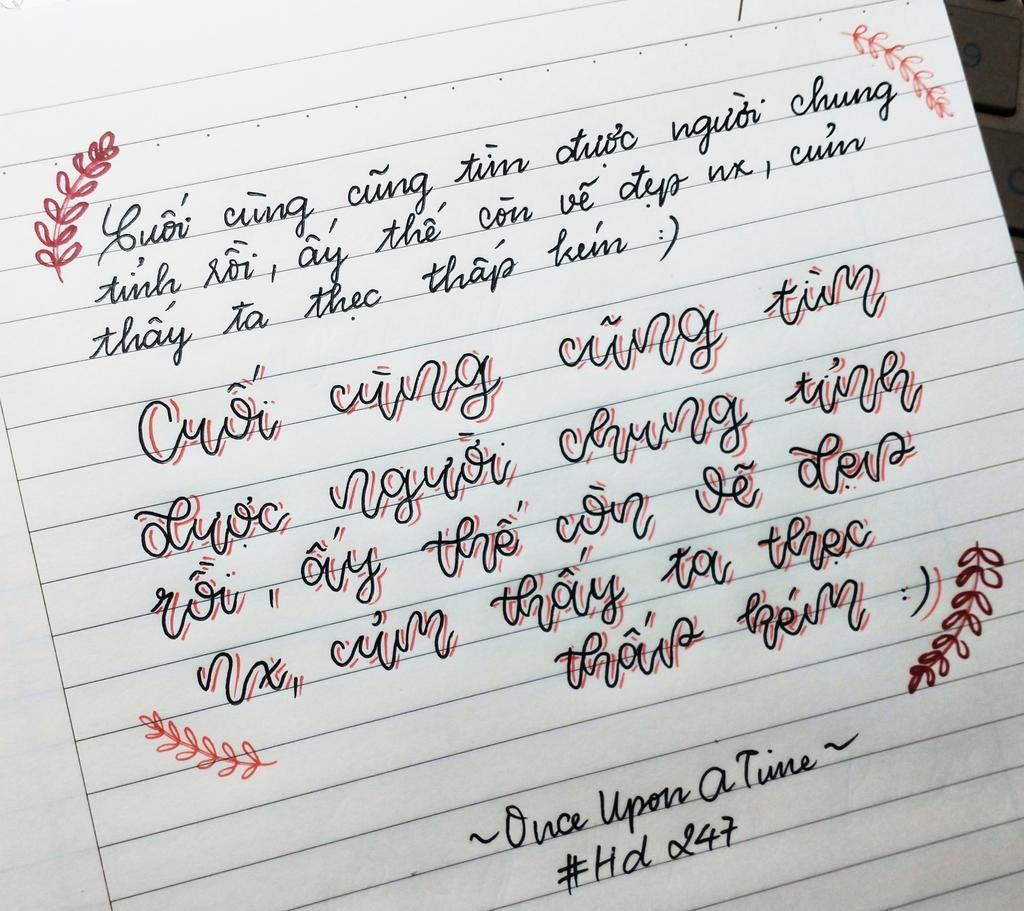 Cuối cùng cũng tìm được người chung
tình rồi, ấy thế còn vẽ đẹp nx, củm
thấy ta thẹc thấp kém :)
Cuối cùng cũng tìm
được người chung tỉnh
rồi, ấy thế còn vẽ đẹp
nx, củm thấy ta thẹc
thấp kém :)
~Once Upon A Time~
#Hd 247